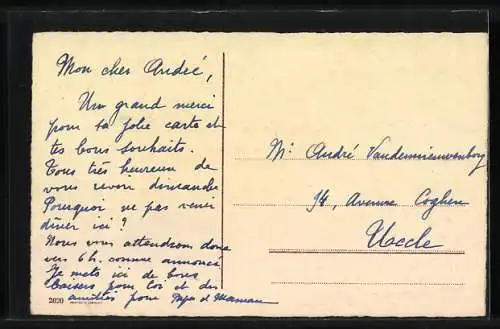 Mon cher André,
Un grand merci
pour ta jolie carte et
tes bons souhaits.
Tous très heureux de
vous revoir dimanche
Pourquoi ne pas venir
dîner ici ?
Nous vous attendrons donc
vers 6 h. comme annoncé
Je mets ici de bons
baisers pour toi et des
amitiés pour Papa et Maman
Mr André
94, Avenue Coghen
Uccle
2020